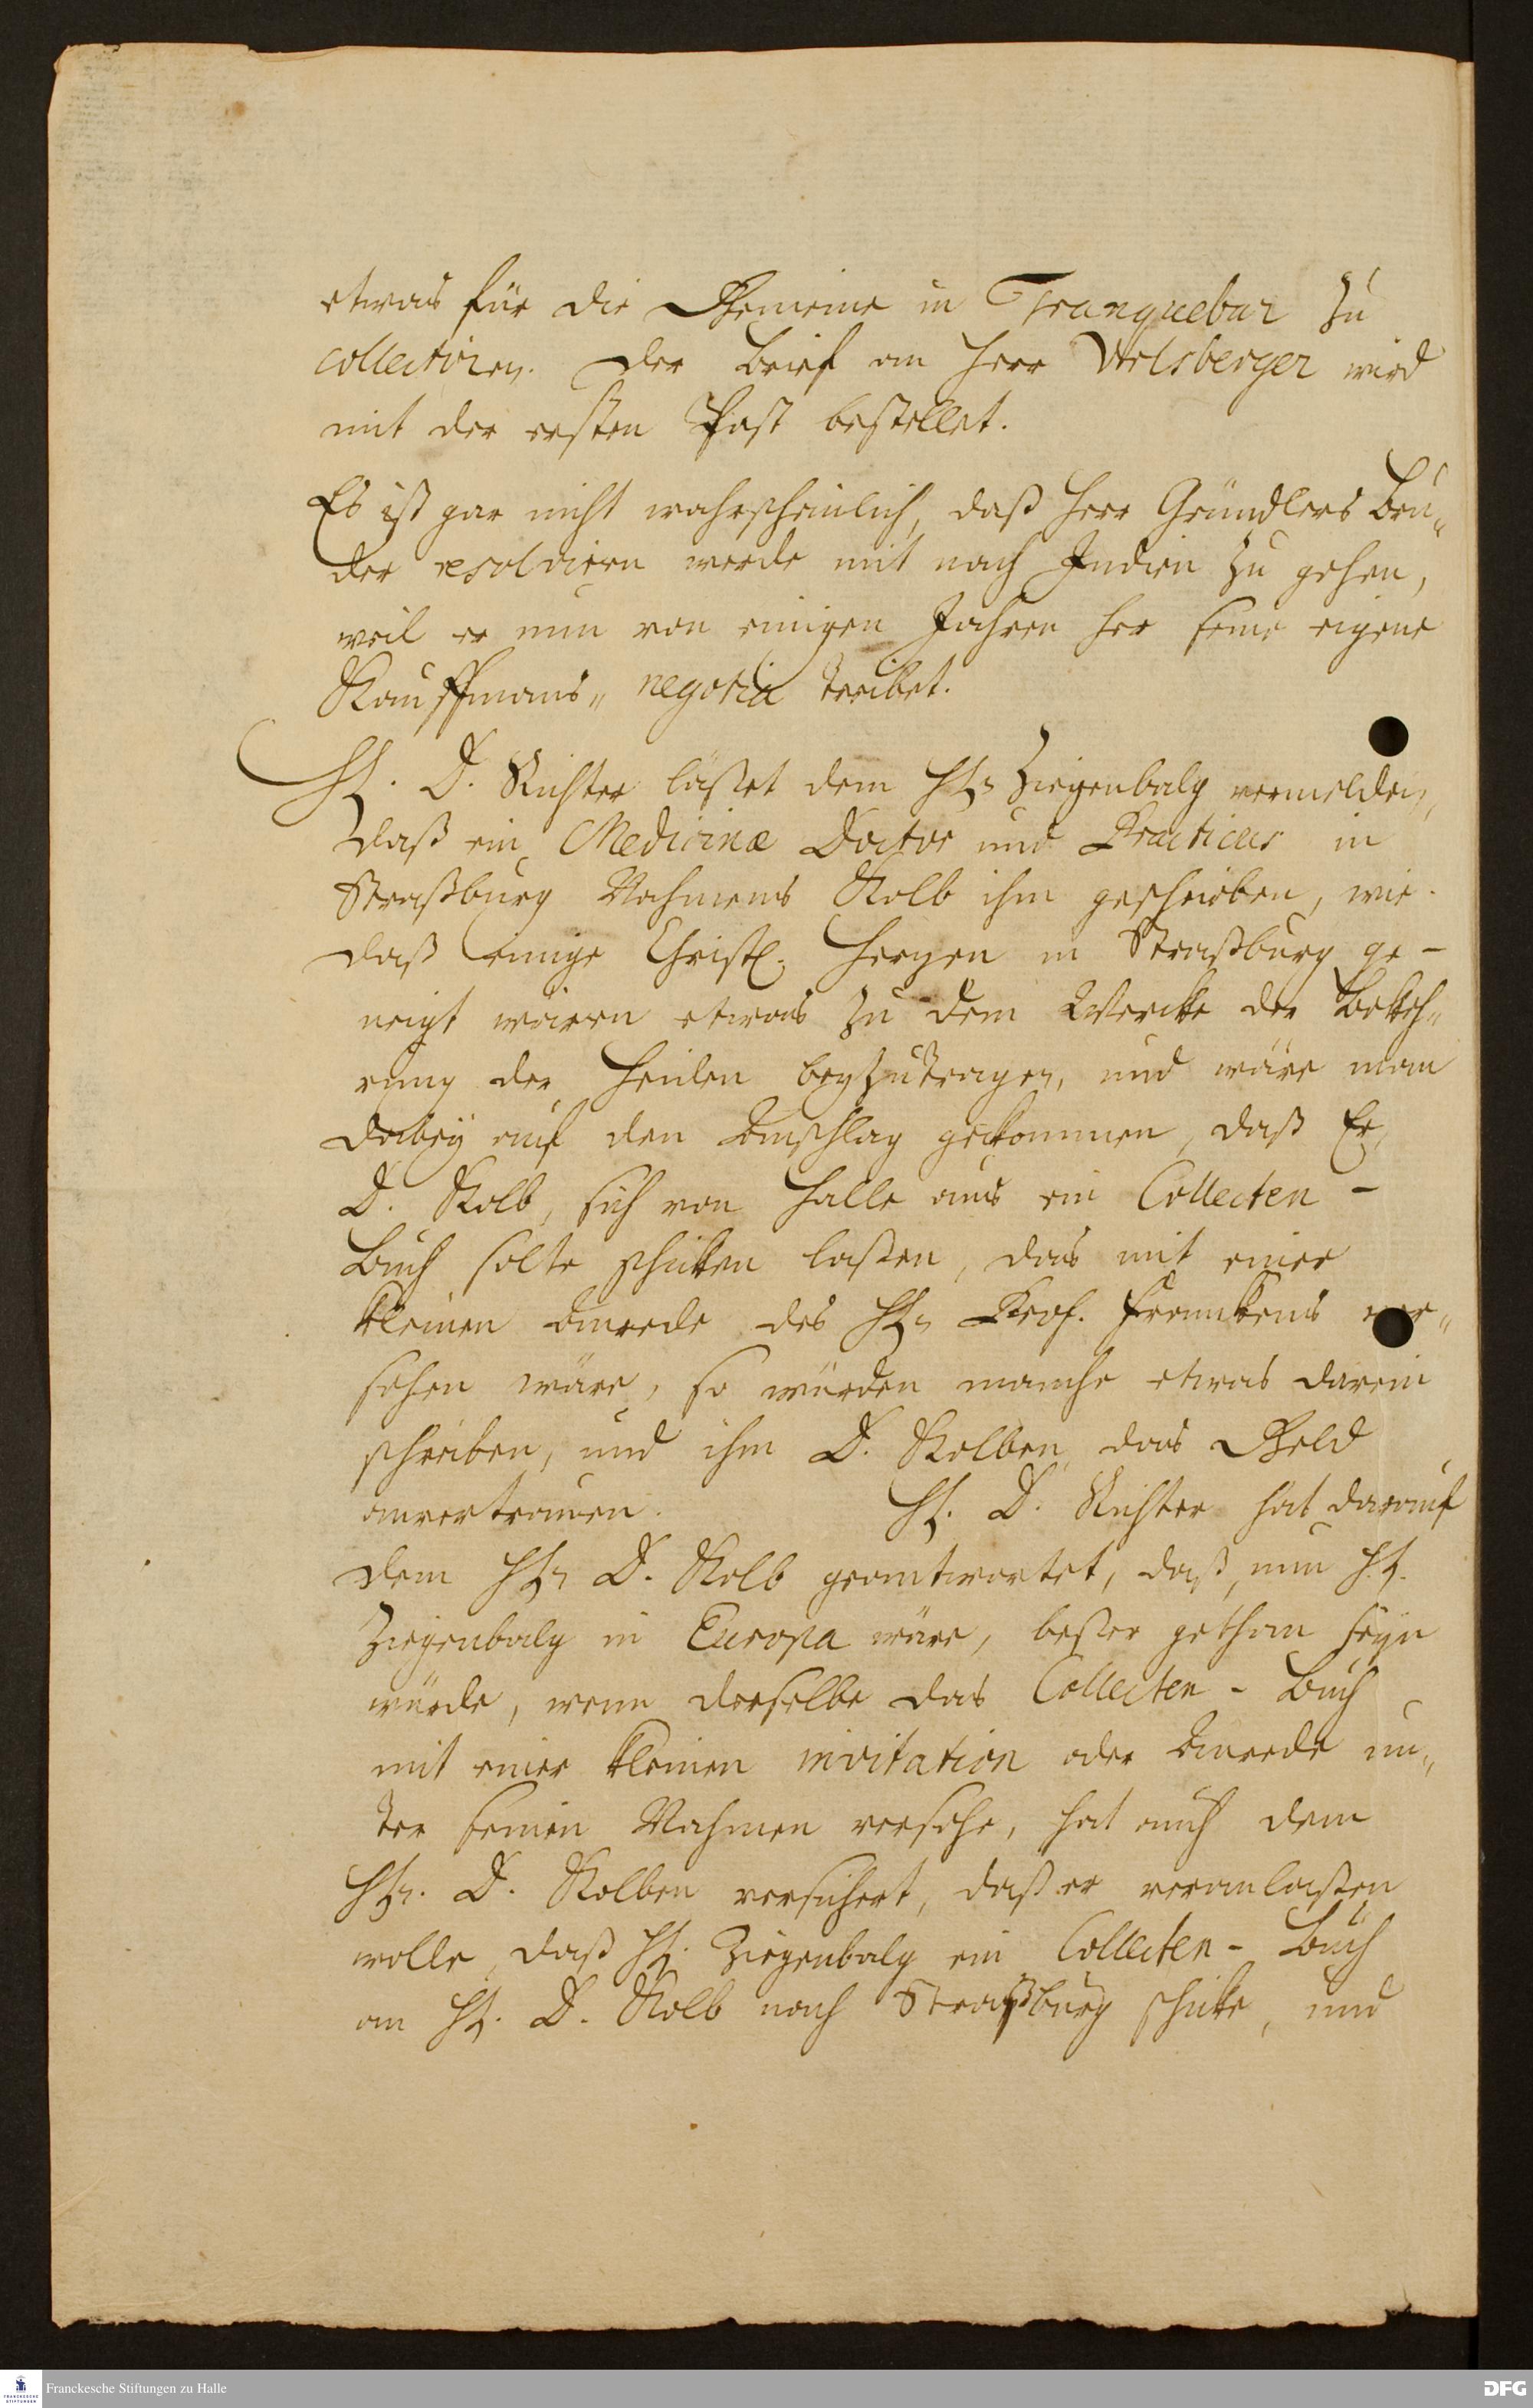 etwas für die Gemeine in Tranquebar zu
collectiren. Der Brief an Herr Urlsberger wird
mit der ersten Post bestellet.
Es ist gar nicht wahrscheinlich, daß Herr Gründlers Bru„
der resolviren werde mit nach Indien zu gehen,
weil er nun von einigen Jahren her seine eigene
Kauffmans„ negotia treibet.
H. D. Richter läßet dem Hn Ziegenbalg vermelden,
daß ein Medicinæ Doctor und Practicus in
Straßburg Nahmens Kolb ihm geschrieben, wie
daß einige Christl. Herzen in Straßburg ge-
neigt wären etwas zu dem Wercke der Bekeh„
rung der Heiden beyzutragen, und wäre man
dabey auf den Anschlag gekommen, daß Er,
D. Kolb, sich von Halle aus ein Collecten-
Buch solte schicken laßen, das mit einer
kleinen Anrede des Hn Prof. Franckens ver„
sehen wäre, so würden manche etwas darein
schreiben, und ihm D. Kolben das Geld
anvertrauen. H. D. Richter hat darauf
dem Hn D. Kolb geantwortet, daß, nun H.
Ziegenbalg in Europa wäre, beßer gethan seyn
würde, wenn derselbe das Collecten-Buch
mit einer kleinen invitation oder Anrede un„
ter seinen Nahmen versehe, hat auch dem
Hn. D. Kolben versichert, daß er veranlaßen
wolle, daß H. Ziegenbalg ein Collecten-Buch
an H. D. Kolb nach Straßburg schicke, und
Franckesche Stiftungen zu Halle
DFG